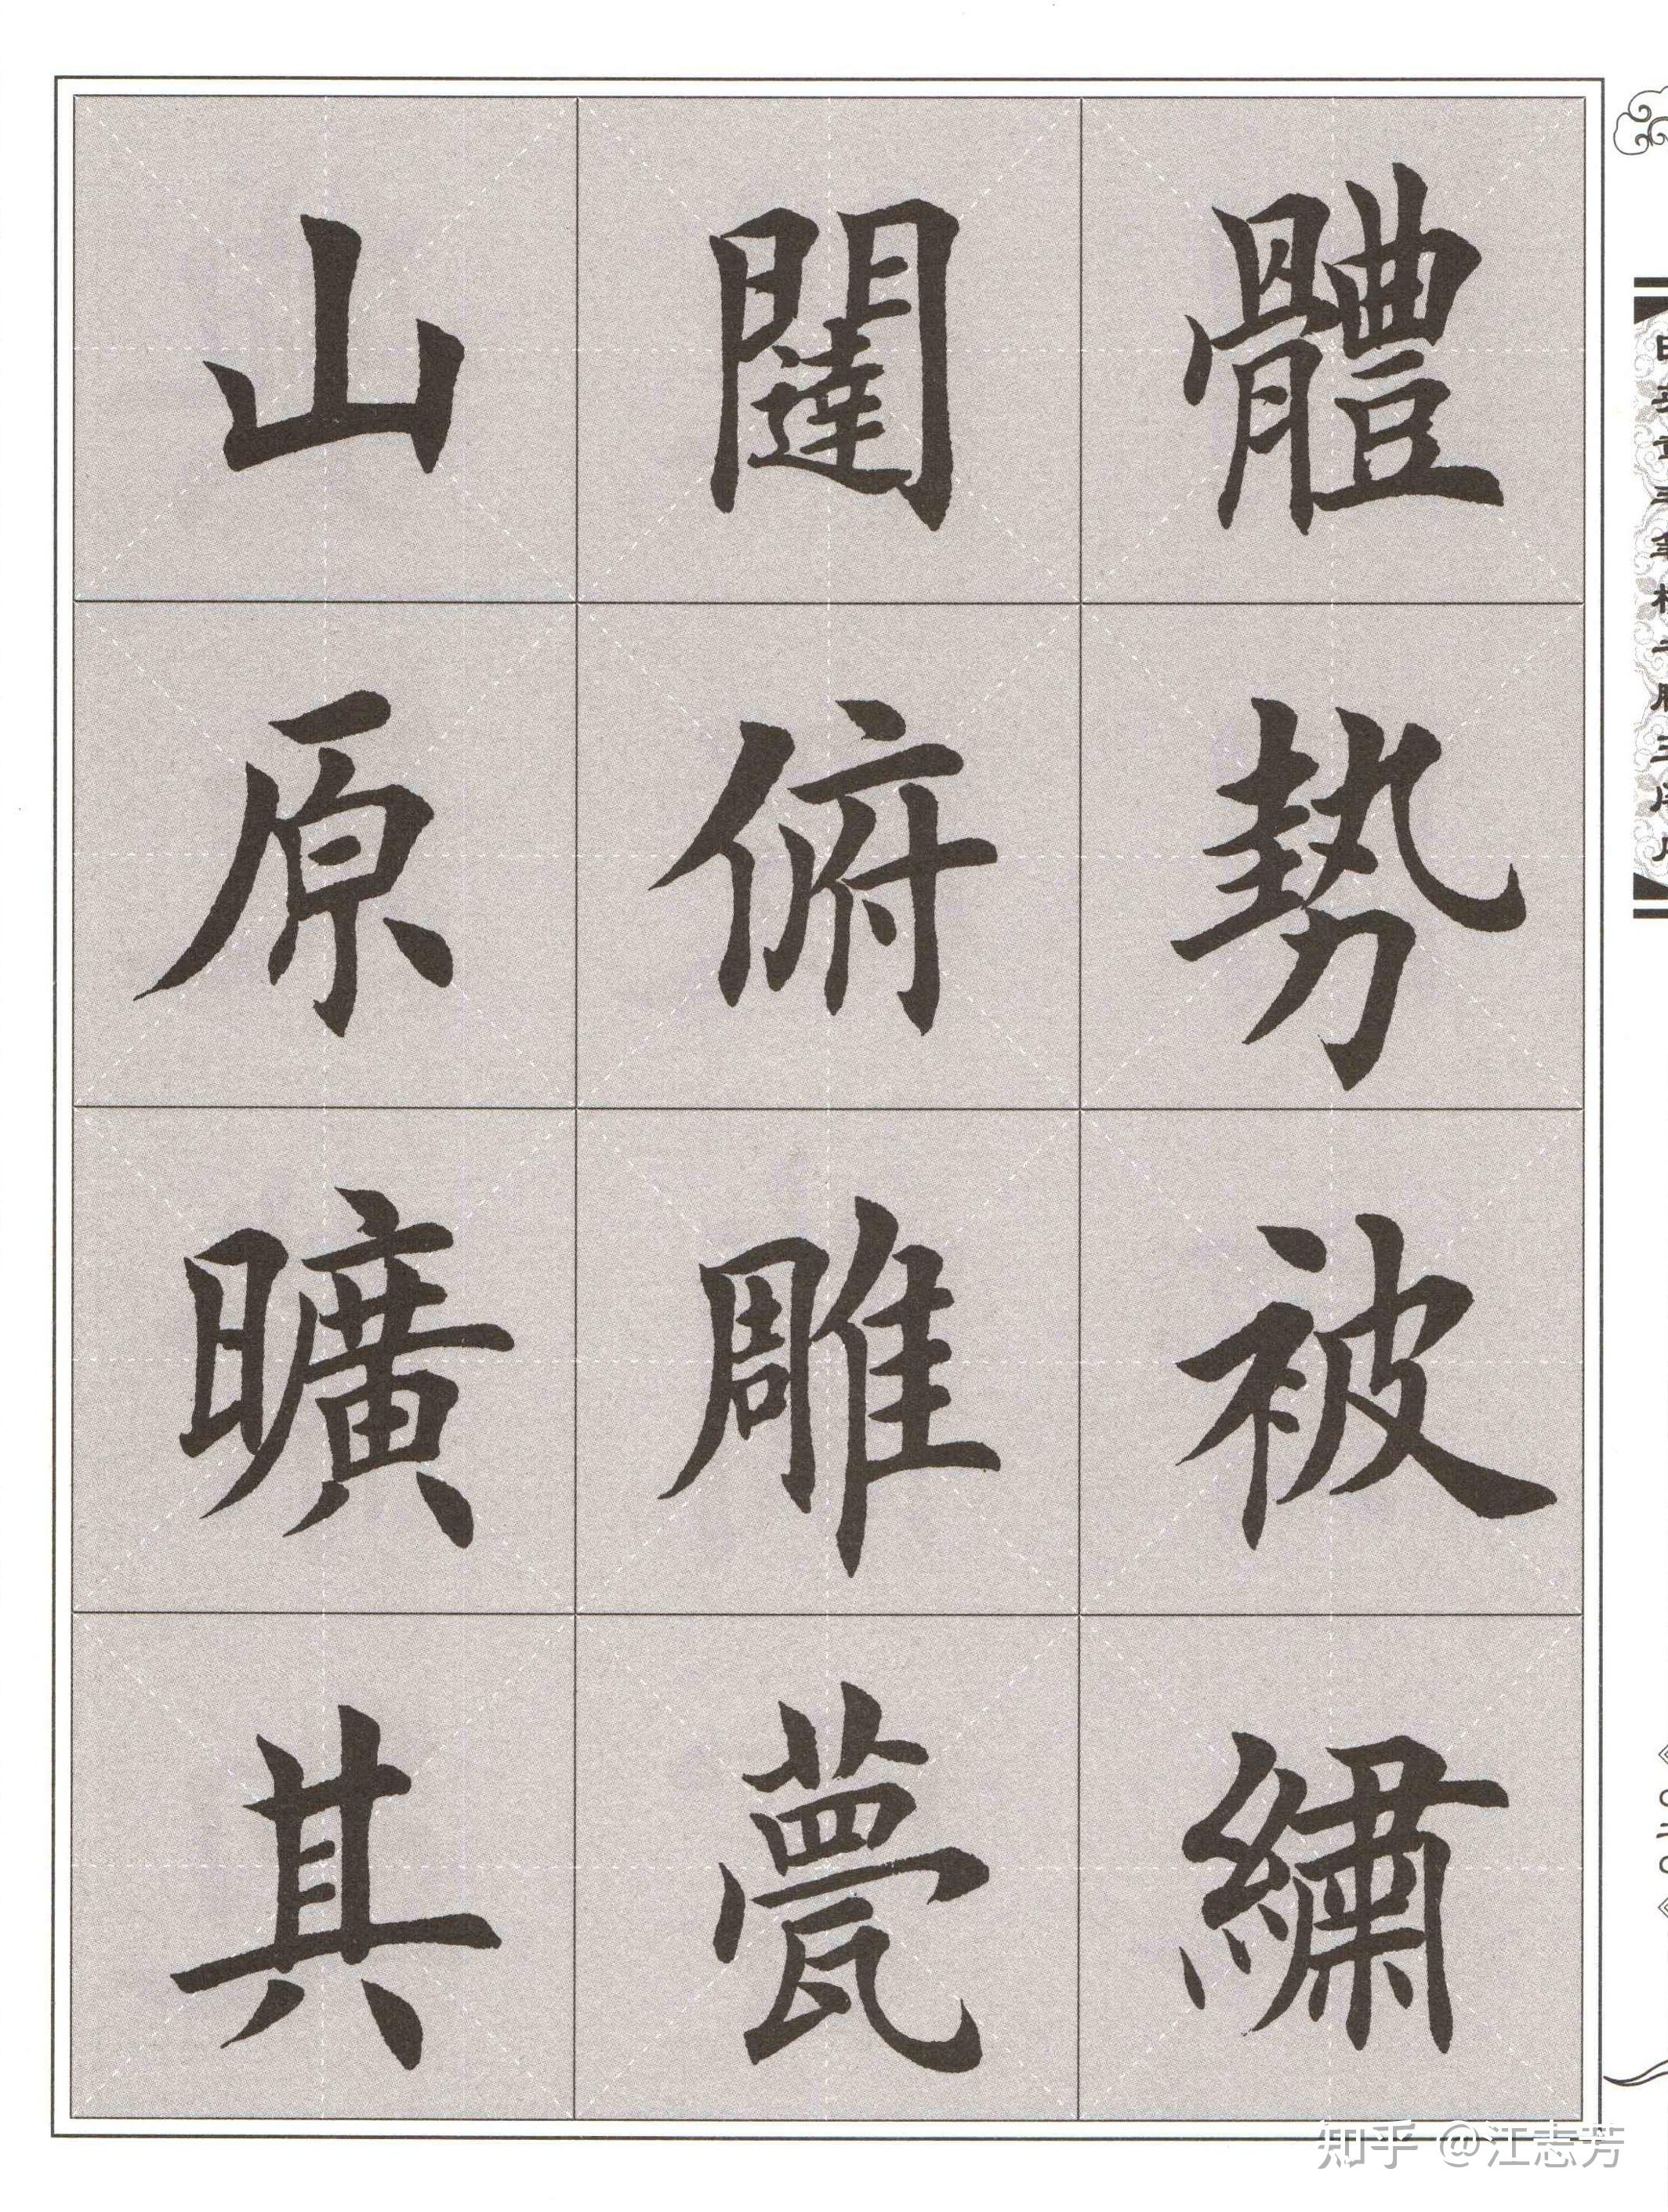 體勢被繡
闥俯雕甍
山原曠其
知乎 @江志芳